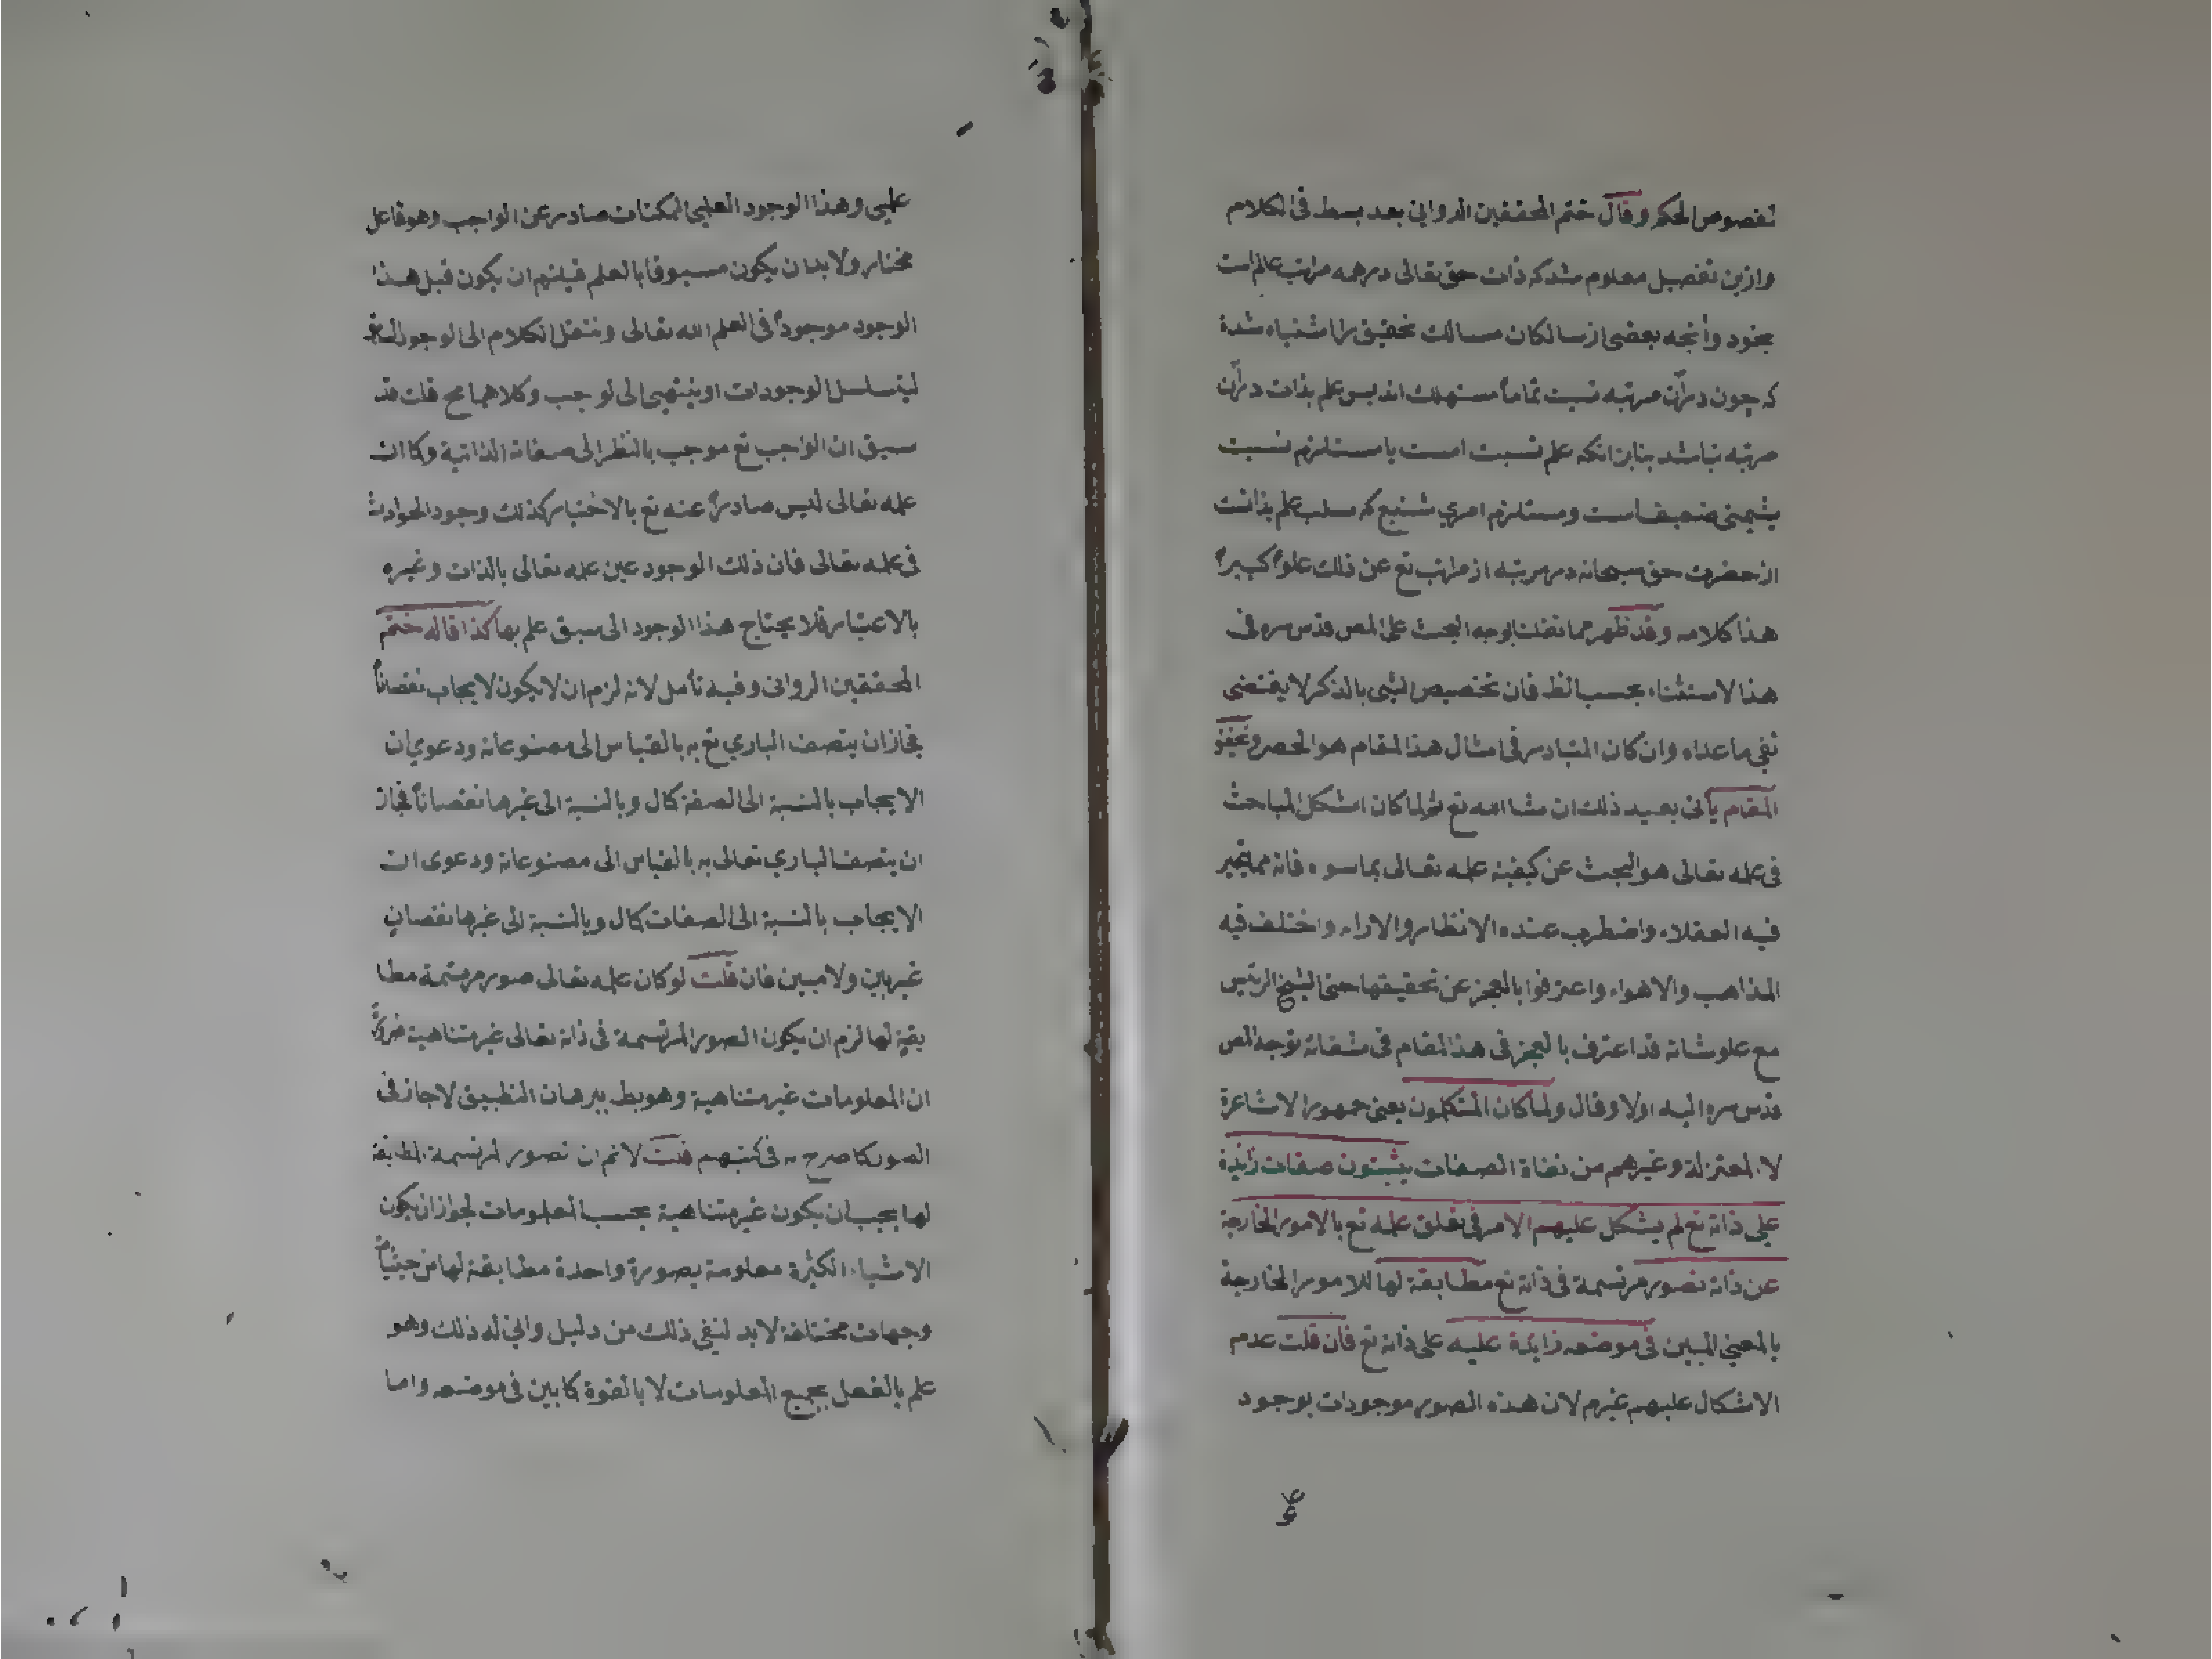 لفصوص الحكم وقال ختم المحققين الدواني بعد بسط فى الكلام
وازين تفصيل معلوم شد كه ذات حق تعالى در همه مراتب عالم است
بخود وآنچه بعضى از سالكان مسالك تحقيق را اشتباه شده
كه چون در آن مرتبه نسبت تماماً مستهلك اند پس علم بذات در آن
مرتبه نباشد بنابر آنكه علم نسبت است يا مستلزم نسبت
ضعيف است ومستلزم امري شنيع كه سلب علم بذاتست
از حضرت حق سبحانه در مرتبه از مراتب تع عن ذلك علواً كبيراً
هذا كلامه وقد ظهر مما نقلنا وجه البحث على المص قدس سره فى
هذا الاستثناء بحسب الظ فان تخصيص الشى بالذكر لا يقتضى
نفي ما عداه وان كان المتبادر فى امثال هذا المقام هو الحصر وتحقيق
المقام يأتى بعيد ذلك ان شا الله تع ولما كان اشكل المباحث
فى علمه تعالى هو البحث عن كيفية علمه تعالى بما سوه فانه مما تحير
فيه العقلاء واضطرب عنده الانظار والاراء واختلف فيه
المذاهب والاهواء واعترفوا بالعجز عن تحقيقها حتى الشيخ الرئيس
مع علو شانه قد اعترف بالعجز فى هذا المقام فى شفائه توجه المص
قدس سره اليه اولا وقال ولما كان المتكلمون يعنى جمهور الاشاعرة
لا المعتزلة وغيرهم من نفاة الصفات يثبتون صفات زايدة
على ذاته تع لم يشكل عليهم الامر فى تعلق علمه تع بالامور الخارجة
عن ذاته بصور مرتسمة فى ذاته تع مطابقة لها للامور الخارجة
بالمعنى المبين فى موضعه زايدة عليه على ذاته تع فان قلت عدم
الاشكال عليهم غير م لان هذه الصور موجودات بوجود
علمي وهذا الوجود العلمي الممكنات صادر عن الواجب وهو فاعل
مختار ولا بد ان يكون مسبوقا بالعلم فيلزم ان يكون قبل هذا
الوجود موجوداً فى العلم الله تعالى وننقل الكلام الى الوجود
ليتسلسل الوجودات او ينتهى الى لوجب وكلاهما مح قلت قد
سبق ان الواجب تع موجب بالنظر الى صفاته الذاتية وكما ان
علمه تعالى ليس صادراً عنه تع بالاختيار كذلك وجود الحوادث
فى علمه تعالى فان ذلك الوجود عين علمه تعالى بالذات وغيره
بالاعتبار فلا يحتاج هذا الوجود الى سبق علم بها كذا قاله ختم
المحققين الدوانى وفيه تأمل لانه لزم ان لا يكون لايجاب نقصاناً
فجاز ان يتصف الباري تع به بالقياس الى مصنوعاته ودعوي ان
الايجاب بالنسبة الى الصفة كمال وبالنسبة الى غيرها نقصاناً فجاز
ان يتصف الباري تعالى به بالقياس الى مصنوعاته ودعوى ان
الايجاب بالنسبة الى الصفات كمال وبالنسبة الى غيرها نقصان
غير بين ولا مبين فان قلت لو كان علمه تعالى صور مرتسمة مطا
بقة لها لزم ان يكون الصور المرتسمة فى ذاته تعالى غير متناهية ضرورة
ان المعلومات غير متناهية وهو بط ببرهان التطبيق لاجاز فى
الصور كما صرح به فى كتبهم قلت لانم ان تصور المرتسمة المطابقة
لها يجب ان يكون غير متناهية بحسب المعلومات لجواز ان يكون
الاشياء الكثيرة معلومة بصورة واحدة مطابقة لها من
وجهات مختلفة لابد لنفي ذلك من دليل واني له ذلك وهو
علم بالفعل بجميع المعلومات لا بالقوة كما بين فى موضعه واما